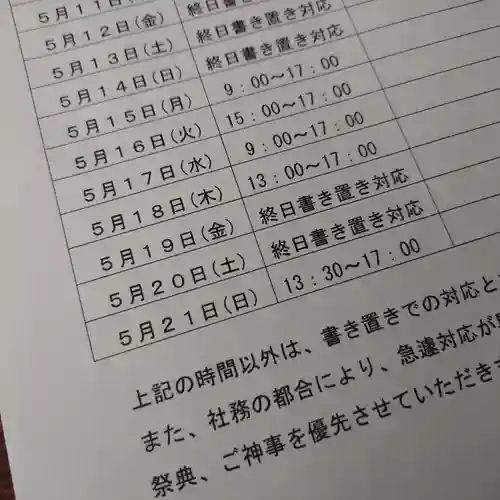 5月11日(
5月12日(金) 終日書き置き対応
5月13日(土) 終日書き置き対応
5月14日(日) 終日書き置き対応
5月15日(月) 9：00～17：00
5月16日(火) 15：00～17：00
5月17日(水) 9：00～17：00
5月18日(木) 13：00～17：00
5月19日(金) 終日書き置き対応
5月20日(土) 終日書き置き対応
5月21日(日) 13：30～17：00
上記の時間以外は、書き置きでの対応と
また、社務の都合により、急遽対応が
祭典、ご神事を優先させていただきま